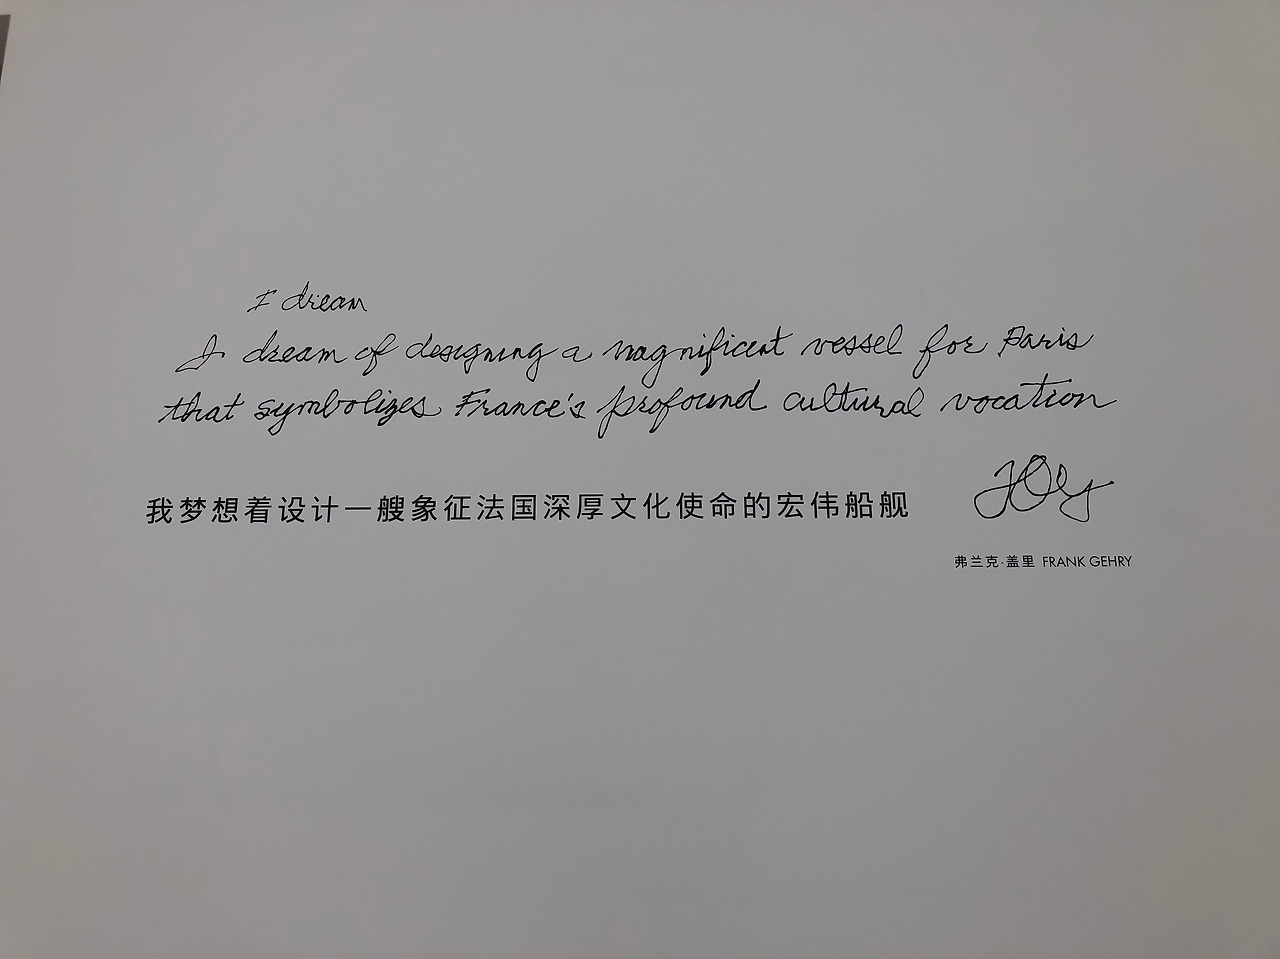 I dream
I dream of designing a magnificent vessel for Paris
that symbolizes France's profound cultural vocation
我梦想着设计一艘象征法国深厚文化使命的宏伟船舰
弗兰克·盖里 FRANK GEHRY